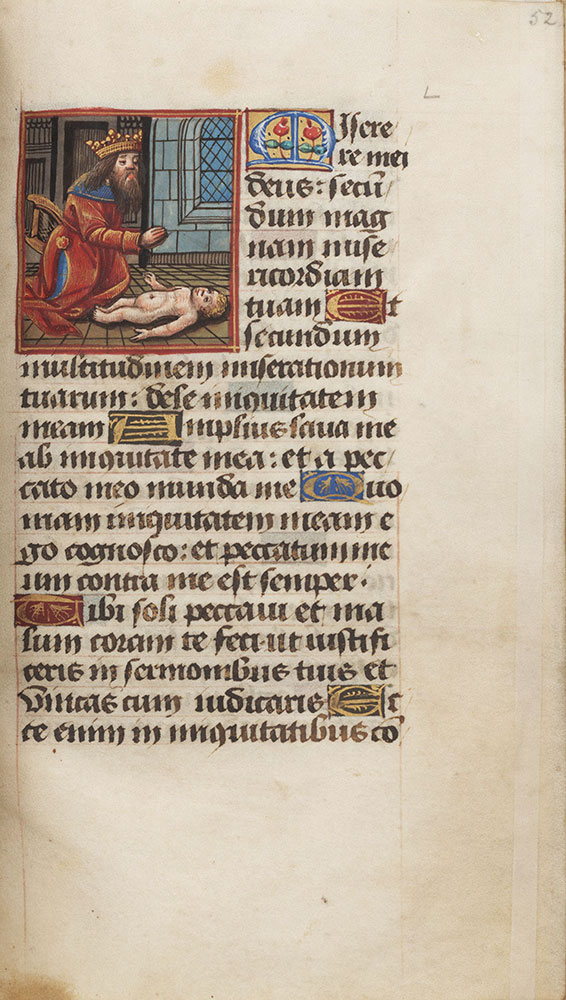 52
Misere
re mei
deus: secū
dum mag
nam mise
ricordiam
tuam Et
secundum
multitudinem miserationum
tuarum: dele iniquitatem
meam Amplius laua me
ab iniquitate mea: et a pec
cato meo munda me Quo
niam iniquitatem meam e
go cognosco: et peccatum me
um contra me est semper.
Tibi soli peccaui et ma
lum coram te feci. ut iustifi
ceris in sermonibus tuis et
vincas cum iudicaris Ec
ce enim in iniquitatibus cō